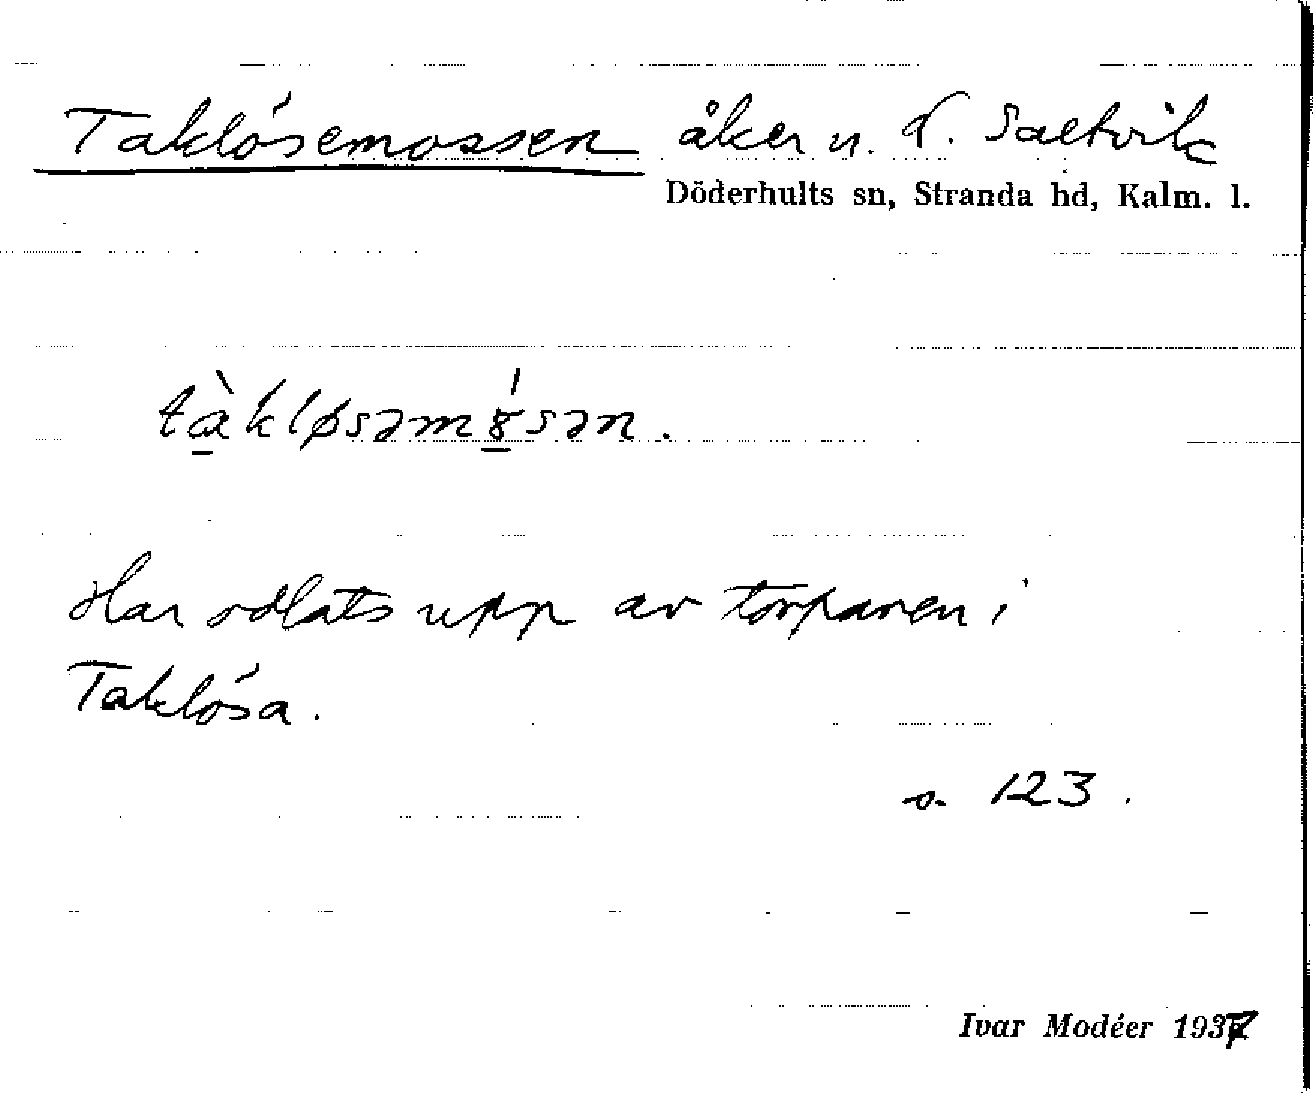 Taklösemossen åker u. N. Saltvik
Döderhults sn, Stranda hd, Kalm. l.
tàkløsəmȣ́sən.
Har odlats upp av torparen i
Taklösa.
s. 123.
Ivar Modéer 1937